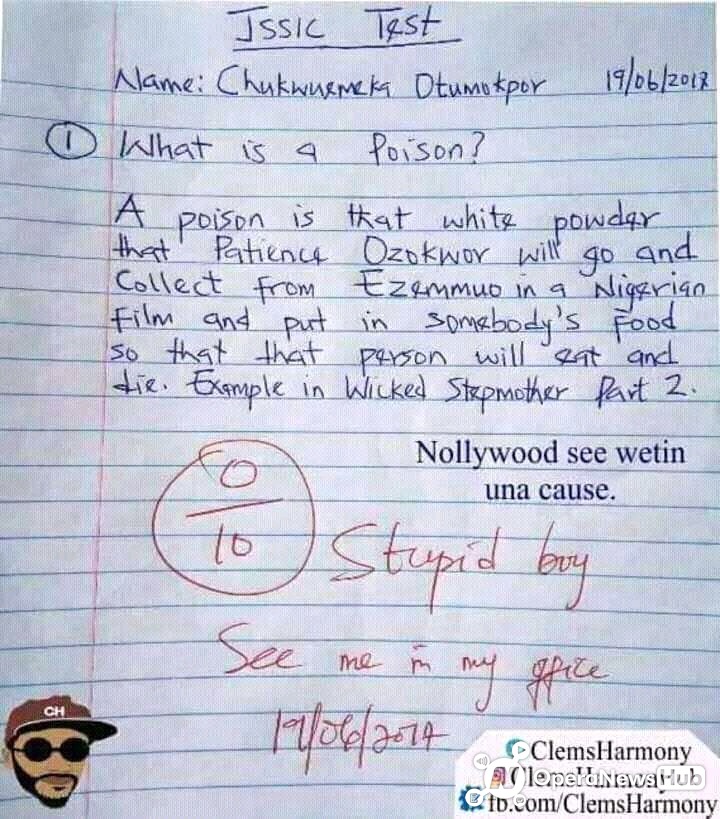 JSS1C Test
Name: Chukwuemeka Otumokpor 19/06/2017
① What is a Poison?
A poison is that white powder
that Patience Ozokwor will go and
Collect from Ezemmuo in a Nigerian
film and put in somebody's food
so that that person will eat and
die. Example in Wicked Stepmother Part 2.
Nollywood see wetin
una cause.
0
10
Stupid boy
See me in my office
19/06/2017
CH
ClemsHarmony
ClemsHarmony
OperaNewsHub
fb.com/ClemsHarmony